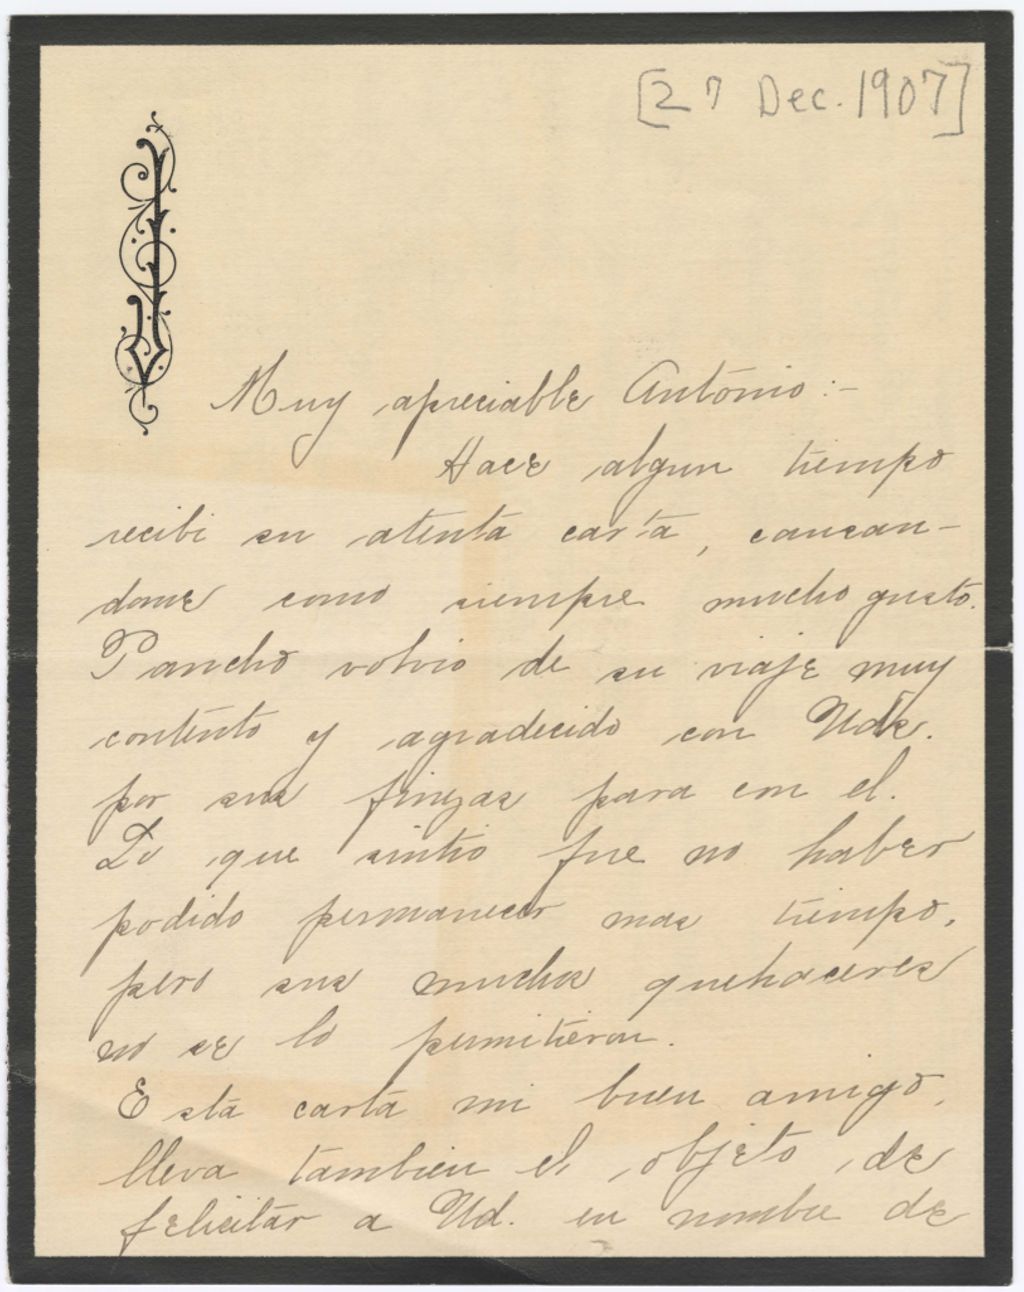 [27 Dec. 1907]
Muy apreciable Antonio:-
Hace algun tiempo
recibi su atenta carta, causan-
dome como siempre mucho gusto.
Pancho volvio de su viaje muy
contento y agradecido con Uds.
por sus finezas para con el.
Lo que sintio fue no haber
podido permanecer mas tiempo,
pero sus muchos quehaceres
no se lo permitieron.
Esta carta mi buen amigo,
lleva tambien el objeto de
felicitar a Ud. en nombre de